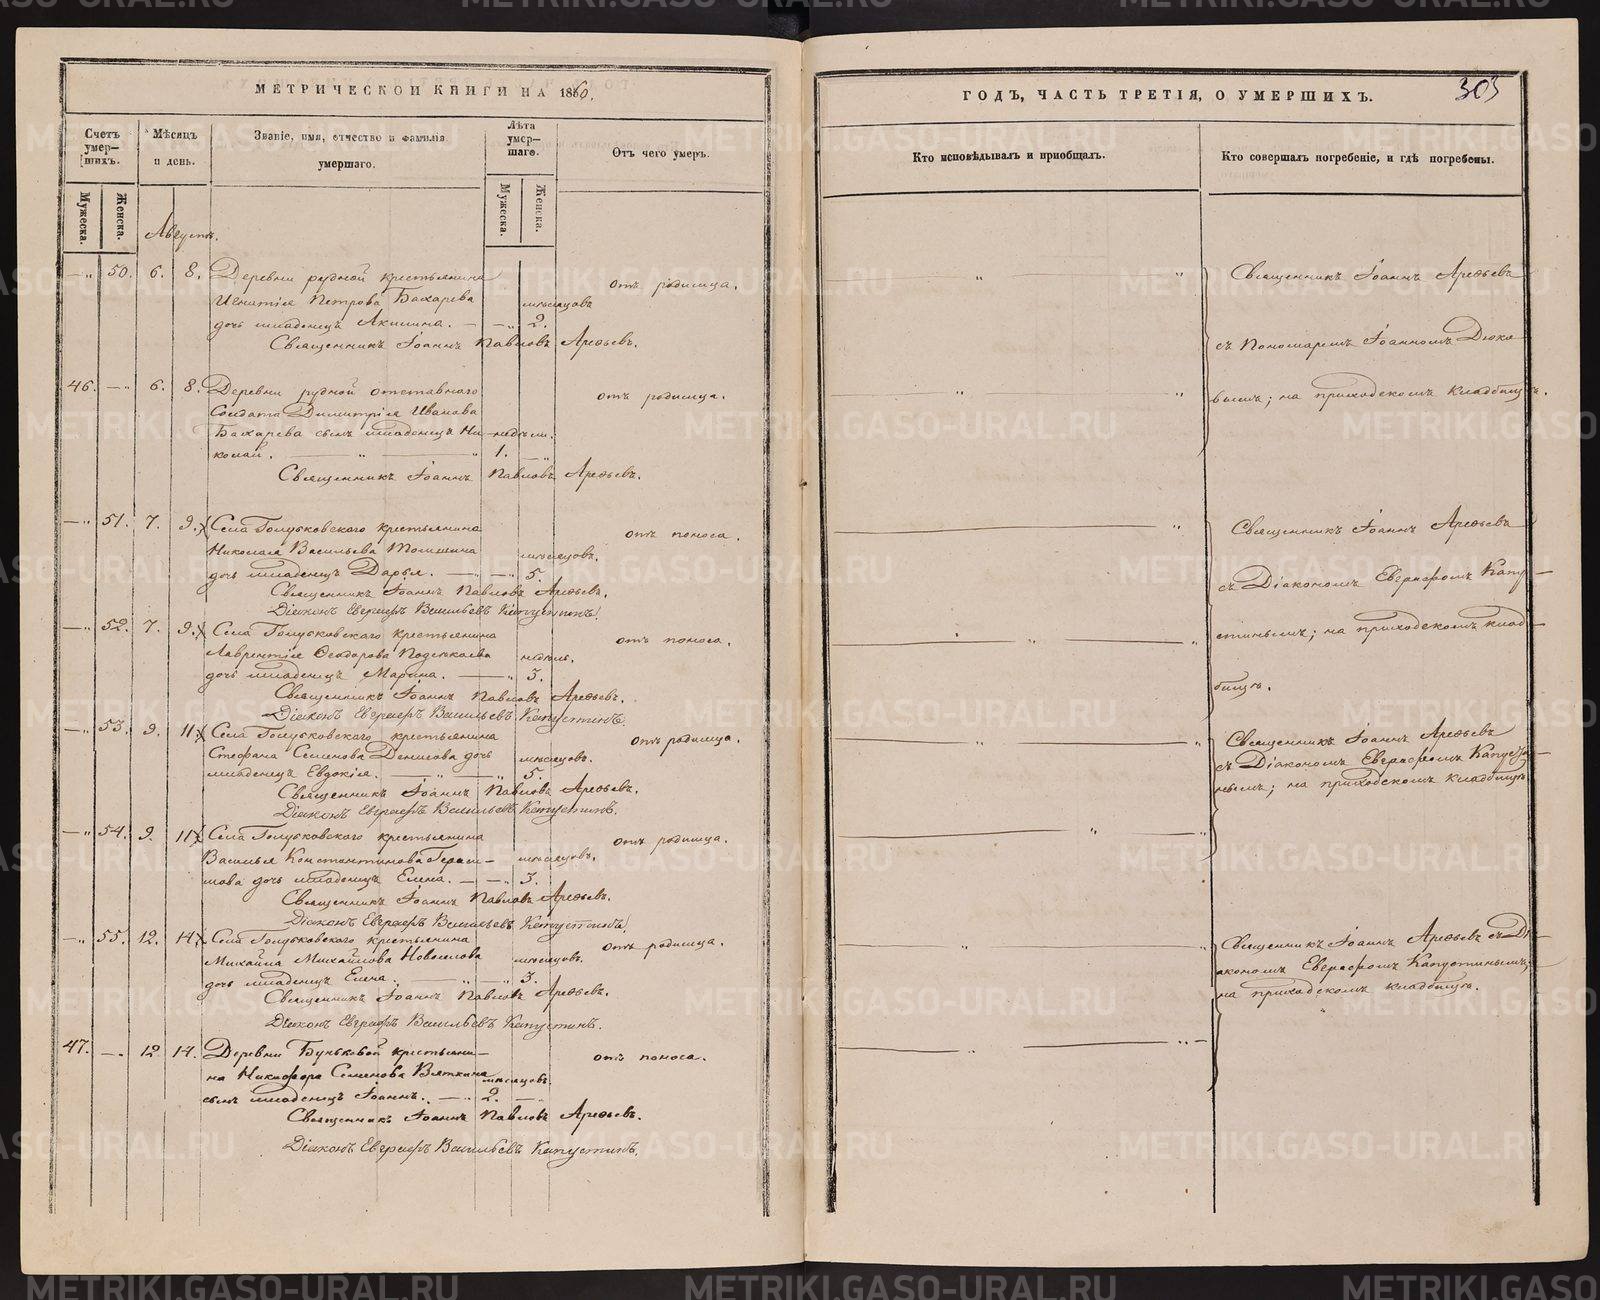 МЕТРИЧЕСКОЙ КНИГИ НА 1860.
Счетъ умер-шихъ.
Мужеска.
Женска.
Мѣсяцъ и день.
Званіе, имя, отчество и фамилія умершаго.
Лѣта умер-шаго.
Мужеска.
Женска.
Отъ чего умеръ.
Августъ.
— „ 50. 6. 8. Деревни рудной крестьянина
Игнатія Петрова Бахарева мѣсяцовъ отъ родимца.
дочь младенецъ Акилина. — — „ 2.
Священникъ Іоаннъ Павловъ Арефьевъ.
46. — „ 6. 8. Деревни рудной отставнаго отъ родимца.
Солдата Димитрія Иванова
Бахарева сынъ младенецъ Ни- недѣли.
колай. — „ — „ 1. — „
Священникъ Іоаннъ Павловъ Арефьевъ.
— „ 51. 7. 9. Села Голубковскаго крестьянина отъ поноса.
Николая Васильева мѣсяцовъ.
дочь младенецъ Дарья. — „ — „ 5.
Священникъ Іоаннъ Павловъ Арефьевъ.
Діаконъ Евграфъ Васильевъ Капустинъ.
— „ 52. 7. 9. Села Голубковскаго крестьянина отъ поноса.
Лаврентія Ѳеодорова недѣль.
дочь младенецъ Марина. — „ 3.
Священникъ Іоаннъ Павловъ Арефьевъ.
Діаконъ Евграфъ Васильевъ Капустинъ.
— „ 53. 9. 11. Села Голубковскаго крестьянина отъ родимца.
Стефана Семенова Денисова дочь мѣсяцовъ.
младенецъ Евдокія. — „ — „ 5.
Священникъ Іоаннъ Павловъ Арефьевъ.
Діаконъ Евграфъ Васильевъ Капустинъ.
— „ 54. 9. 11. Села Голубковскаго крестьянина отъ родимца.
Василья Константинова Гераси- мѣсяцовъ.
мова дочь младенецъ Елена. — „ 3.
Священникъ Іоаннъ Павловъ Арефьевъ.
Діаконъ Евграфъ Васильевъ Капустинъ.
— „ 55. 12. 14. Села Голубковскаго крестьянина отъ родимца.
Михаила Михайлова Новоселова мѣсяцовъ.
дочь младенецъ Елена. — „ — 3.
Священникъ Іоаннъ Павловъ Арефьевъ.
Діаконъ Евграфъ Васильевъ Капустинъ.
47. — „ 12 14. Деревни Буньковой крестьяни- отъ поноса.
на Никифора Семенова Вяткина мѣсяцовъ
сынъ младенецъ Іоаннъ. — „ 2. — „
Священникъ Іоаннъ Павловъ Арефьевъ.
Діаконъ Евграфъ Васильевъ Капустинъ.
ГОДЪ, ЧАСТЬ ТРЕТІЯ, О УМЕРШИХЪ.
305
Кто исповѣдывалъ и приобщалъ.
Кто совершалъ погребеніе, и гдѣ погребены.
Священникъ Іоаннъ Арефьевъ
съ Пономаремъ Іоанномъ Дюко-
вымъ; на приходскомъ кладбищѣ.
Священникъ Іоаннъ Арефьевъ
съ Діакономъ Евграфомъ Капу-
стинымъ; на приходскомъ клад-
бищѣ.
Священникъ Іоаннъ Арефьевъ
съ Діакономъ Евграфомъ Капусти-
нымъ; на приходскомъ кладбищѣ.
Священникъ Іоаннъ Арефьевъ съ Ді-
акономъ Евграфомъ Капустинымъ;
на приходскомъ кладбищѣ.
METRIKI.GASO-URAL.RU